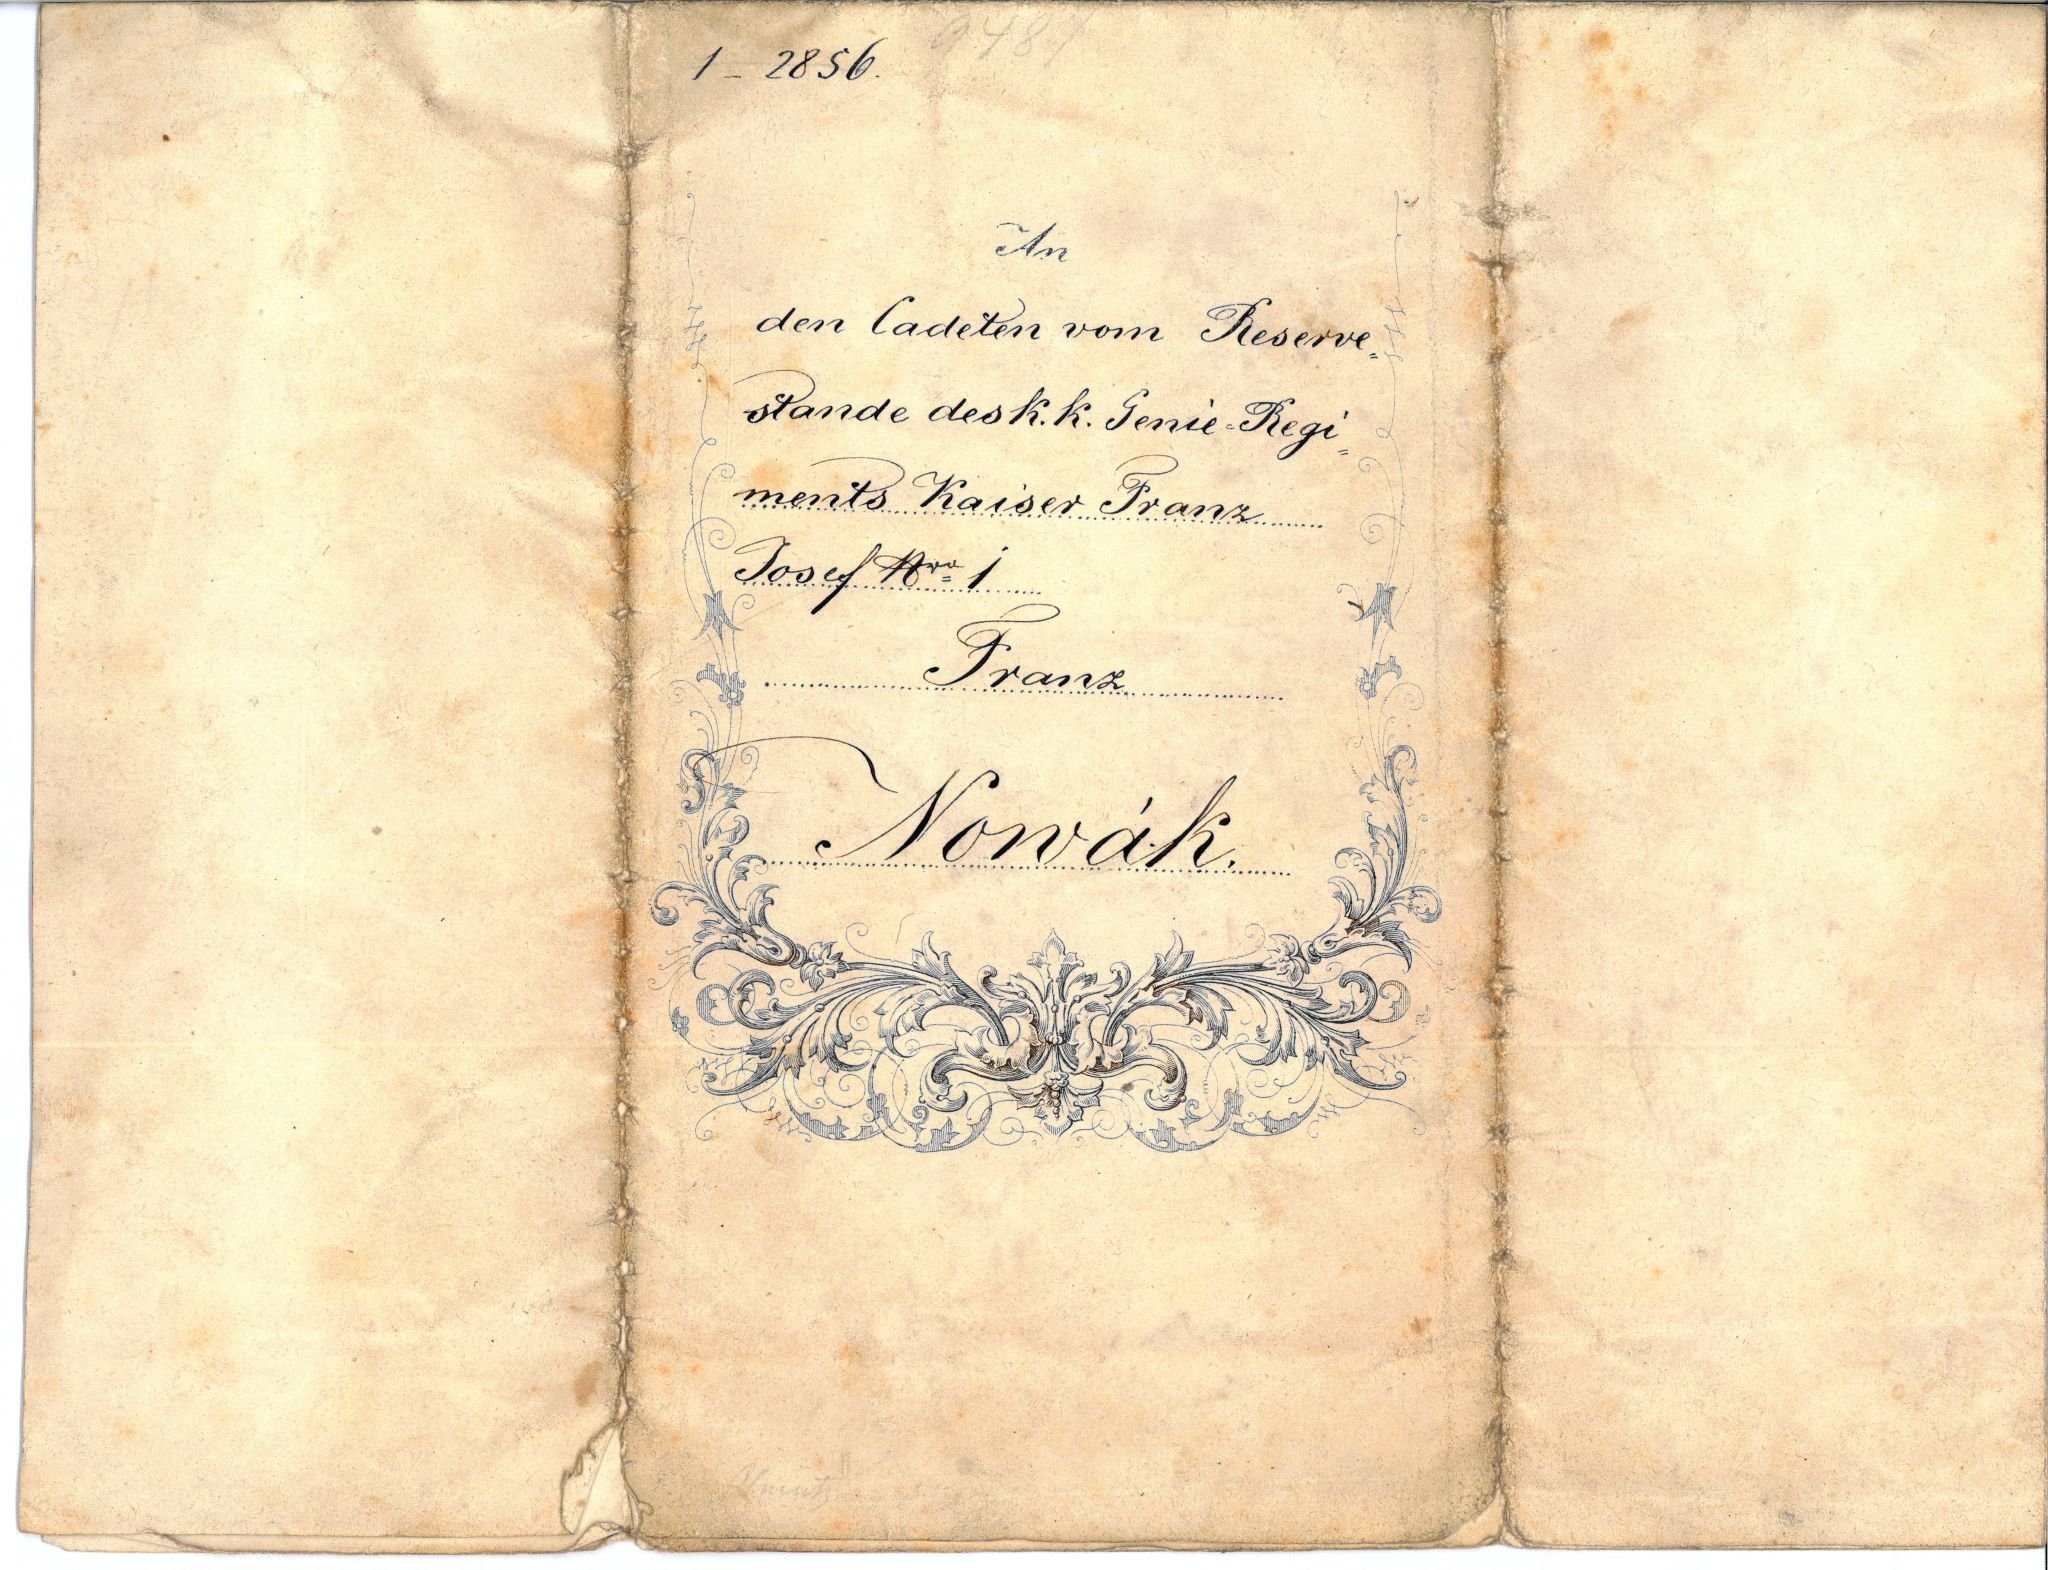 1 – 2856.
An
den Cadeten vom Reserve=
stande des k. k. Genie=Regi=
ments Kaiser Franz
Josef Nro 1
Franz
Nowák.